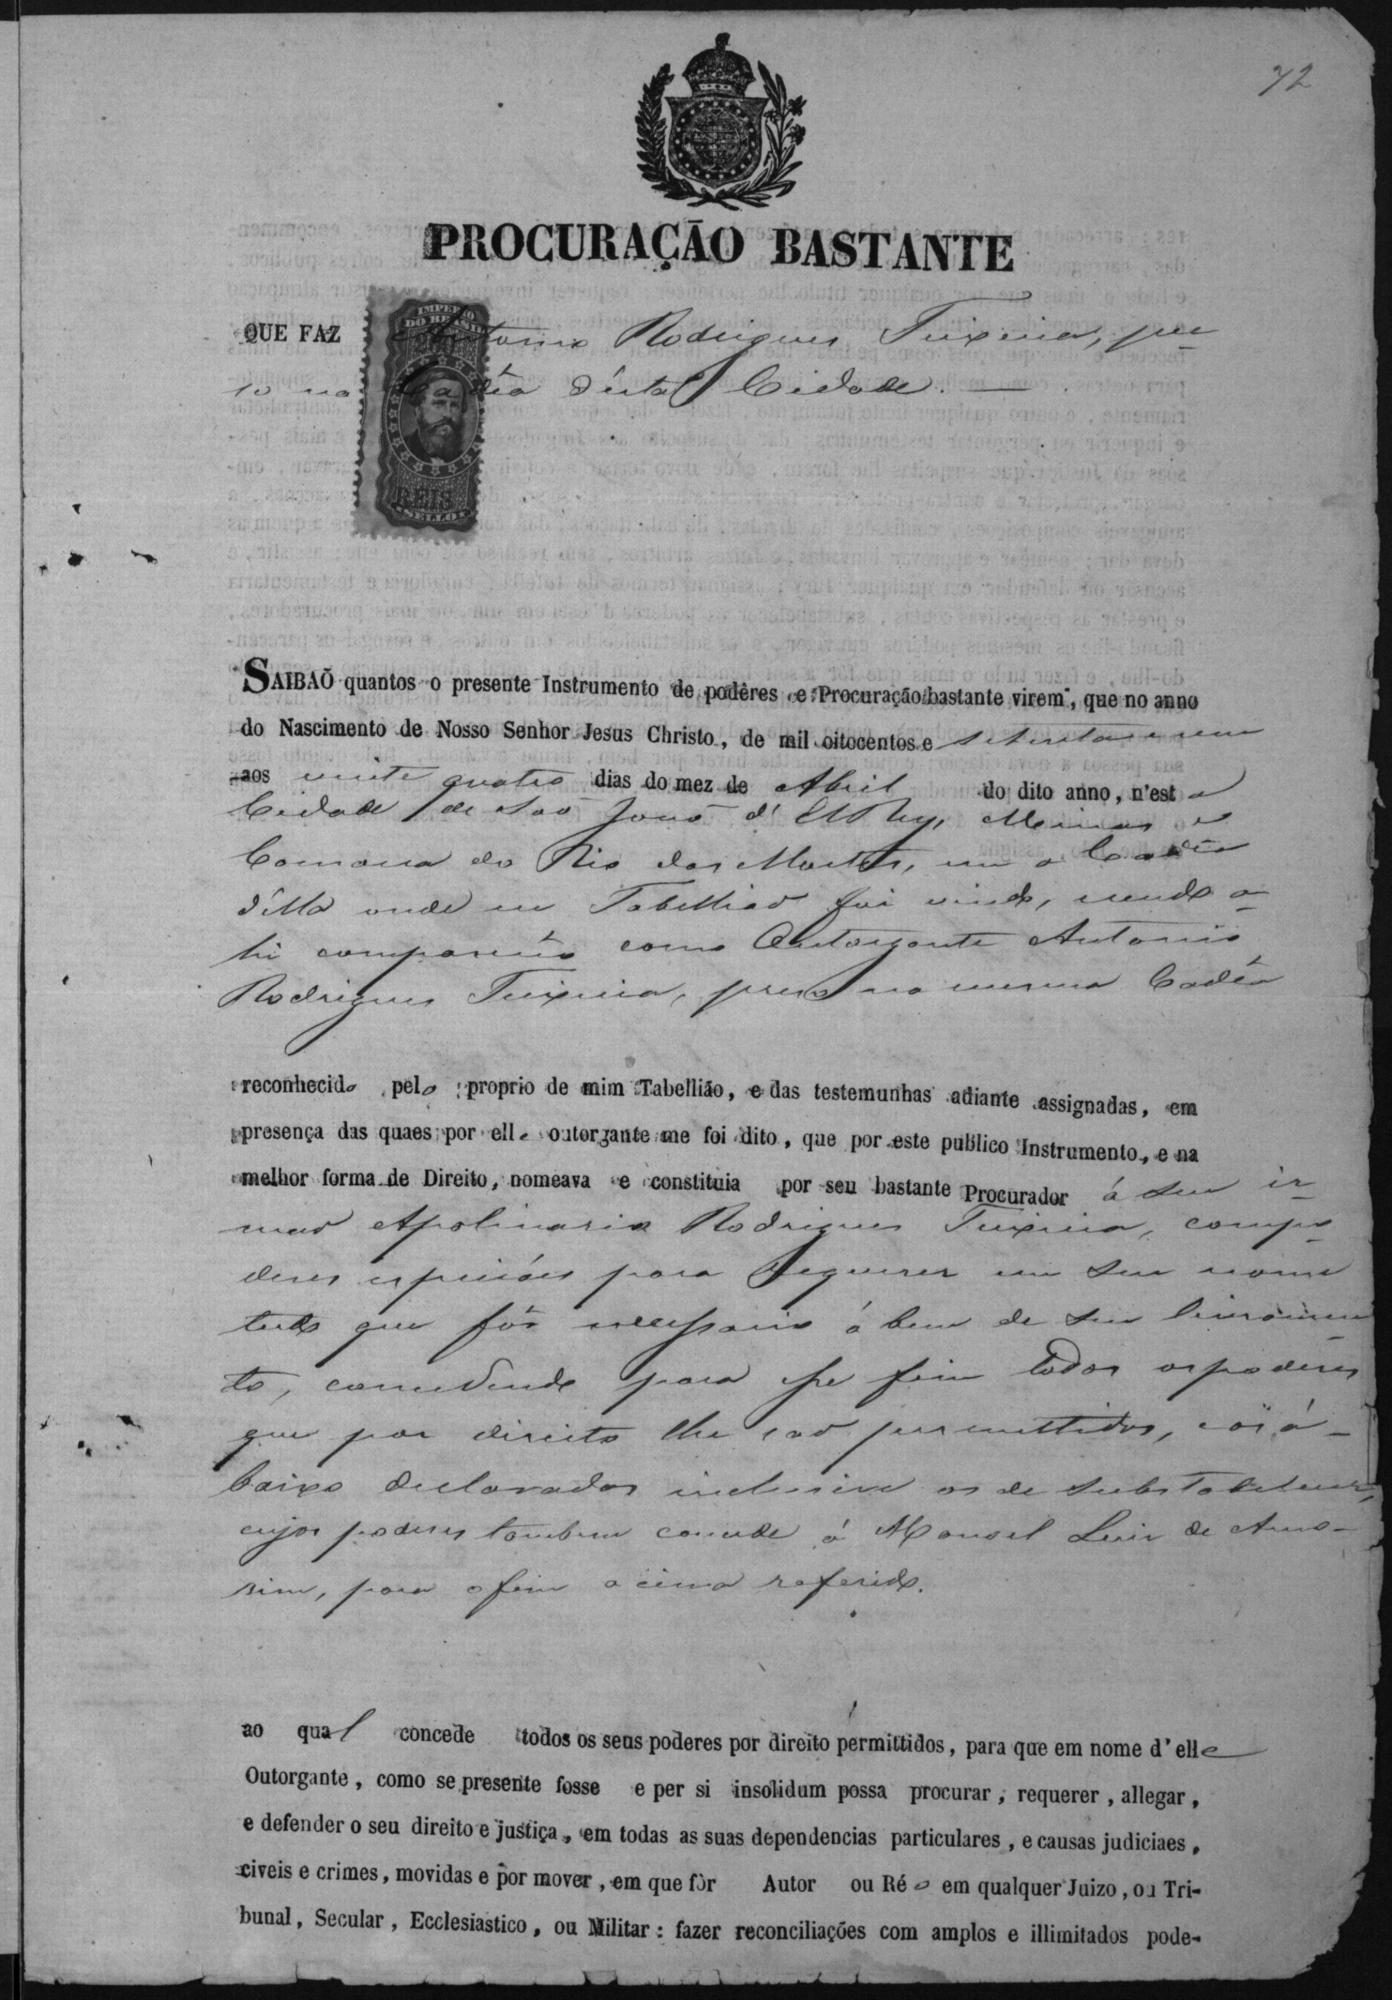 72
PROCURAÇÃO BASTANTE
IMPERIO
DO BRASIL
REIS
SELLO
QUE FAZ Antonio Rodrigues Teixeira, pre-
so na Cadêa d'esta Cidade.
SAIBAÕ quantos o presente Instrumento de podêres e Procuração bastante virem, que no anno
do Nascimento de Nosso Senhor Jesus Christo, de mil oitocentos e setenta e um
aos vinte quatro dias do mez de Abril do dito anno, n'esta
Cidade de São João d'El Rey, Minas e
Comarca do Rio das Mortes, em a Cadêa
d'ella onde eu Tabellião fui vindo, sendo a-
hi compareceu como Outorgante Antonio
Rodrigues Teixeira, preso na mesma Cadêa
reconhecido pelo proprio de mim Tabellião, e das testemunhas adiante assignadas, em
presença das quaes por elle outorgante me foi dito, que por este publico Instrumento, e na
melhor forma de Direito, nomeava e constituia por seu bastante Procurador á seu ir-
mão Apolinario Rodrigues Teixeira, com po-
deres especiáes para requerer em seu nome
tudo que fôr necessario á bem de seu livramen-
to, concedendo para esse fim todos os poderes
que por direito lhe são permittidos, e os á-
baixo declarados inclusive os de substabelecer,
cujos poderes tambem concede á Manoel Luis de Amo-
rim, para o fim acima referido.
ao qual concede todos os seus poderes por direito permittidos, para que em nome d'elle
Outorgante, como se presente fosse e per si insolidum possa procurar, requerer, allegar,
e defender o seu direito e justiça, em todas as suas dependencias particulares, e causas judiciaes,
civeis e crimes, movidas e por mover, em que fòr Autor ou Réo em qualquer Juizo, ou Tri-
bunal, Secular, Ecclesiastico, ou Militar: fazer reconciliações com amplos e illimitados pode-